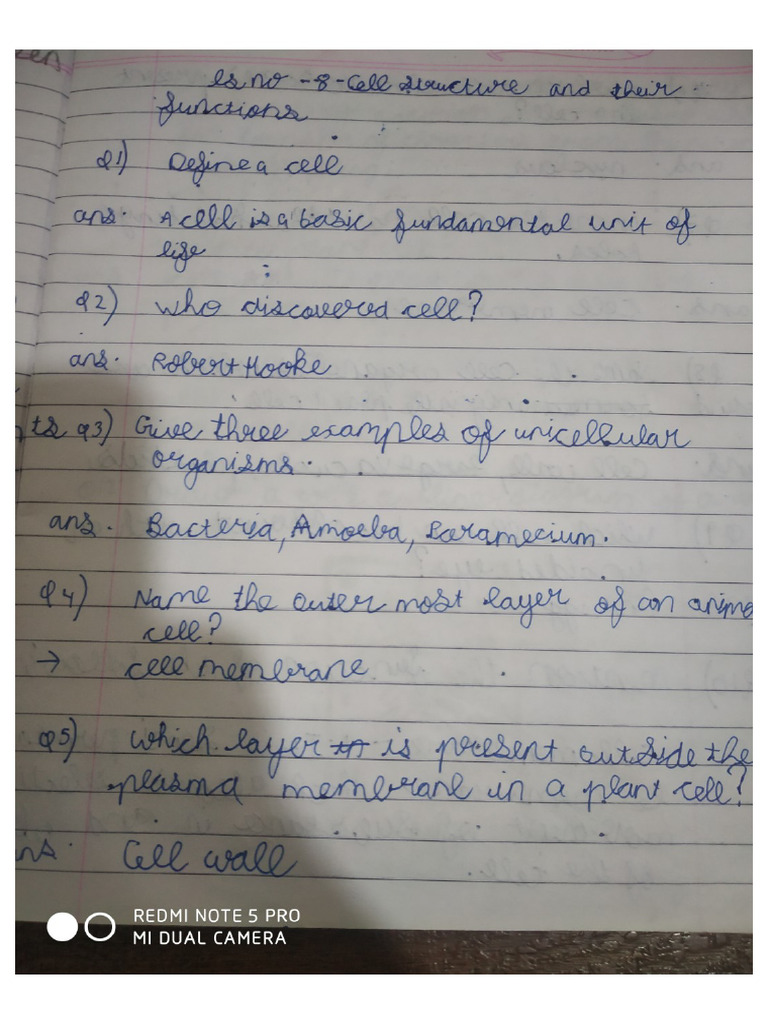 Ls no -8- Cell structure and their
functions
Q1) Define a cell
ans. A cell is a basic fundamental unit of
life
Q2) Who discovered cell?
ans. Robert Hooke
Q3) Give three examples of unicellular
organisms.
ans. Bacteria, Amoeba, Paramecium.
Q4) Name the outer most layer of an anima
cell?
→ cell membrane.
Q5) Which layer is present outside the
plasma membrane in a plant cell?
ns. Cell wall
REDMI NOTE 5 PRO
MI DUAL CAMERA